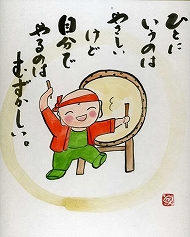 ひとに
いうのは
やさしい
けど
自分で
やるのは
むずかしい。